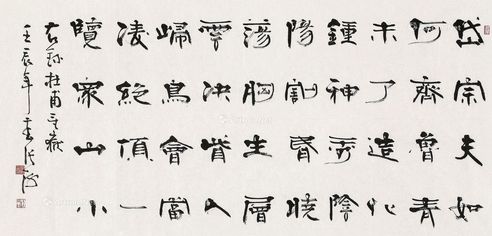 岱宗夫如
何齊魯青
未了造化
鍾神秀陰
陽割昏曉
蕩胸生層
雲決眥入
歸鳥會當
凌絕頂一
覽眾山小
右錄杜甫望嶽
壬辰年